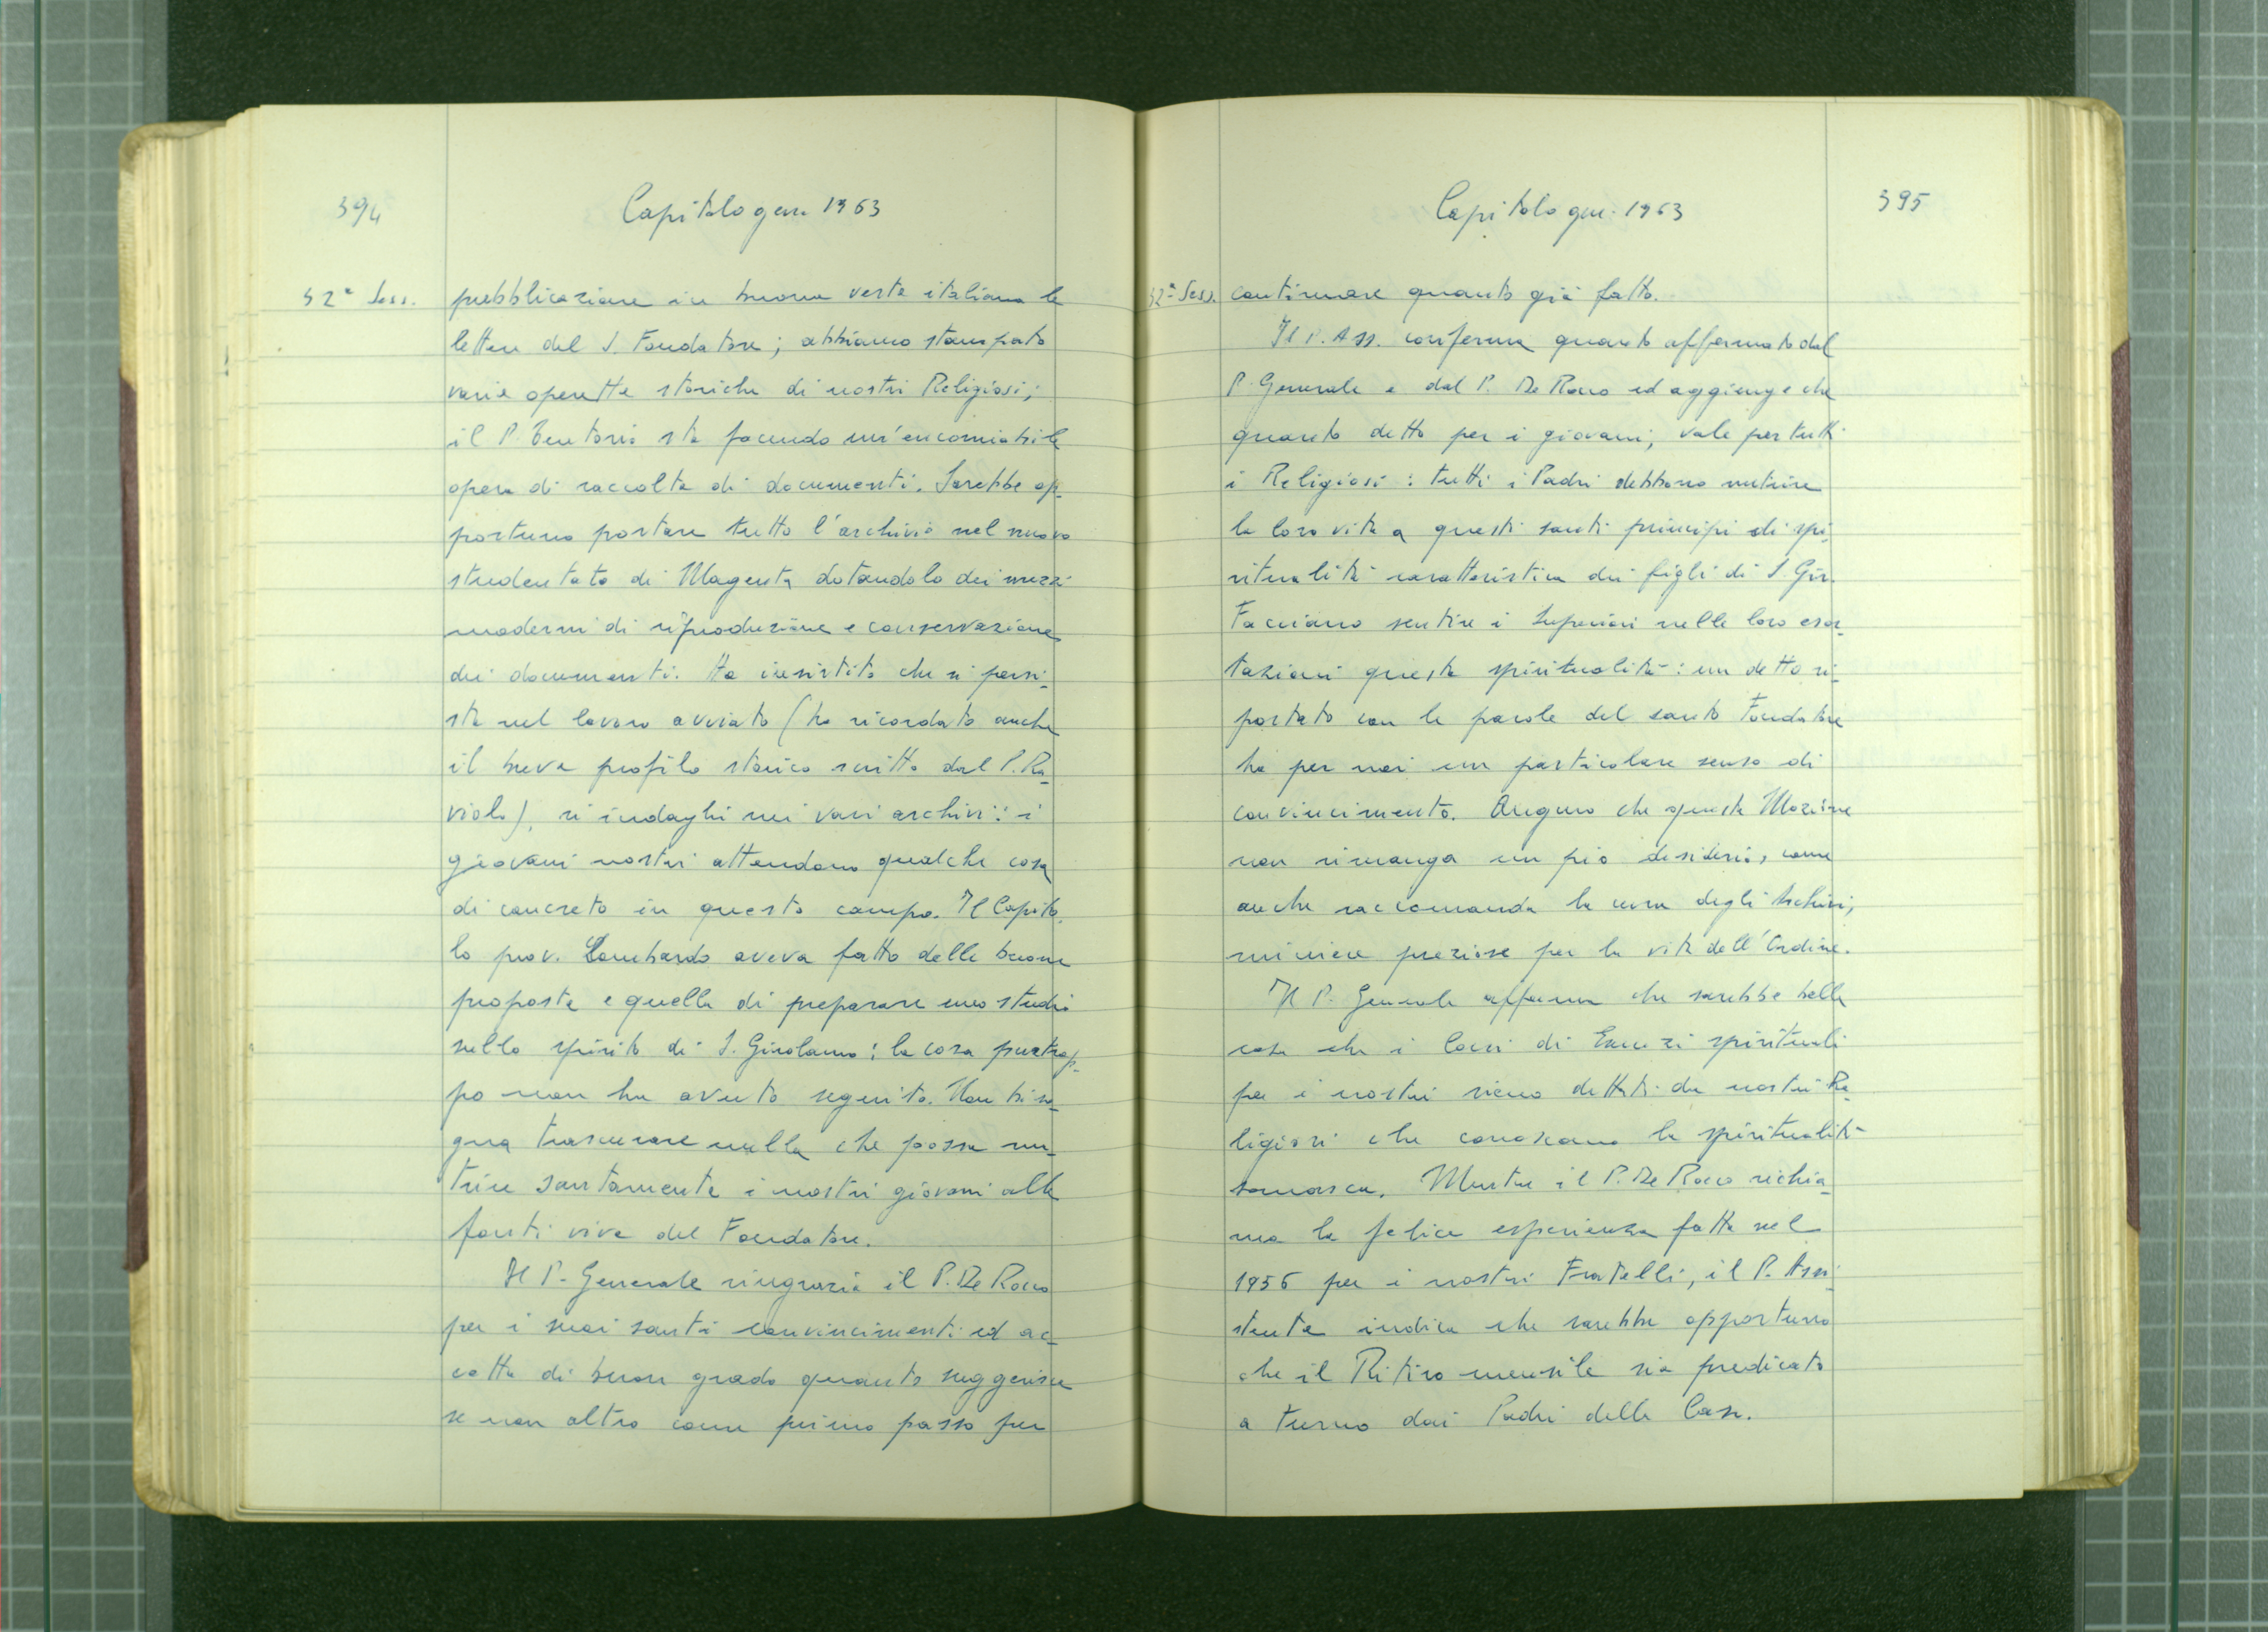 394
Capitolo gen. 1963
32ª Sess.
pubblicazione in buona veste italiana le
lettere del S. Fondatore; abbiamo stampato
varie operette storiche di nostri Religiosi;
il P. Tentorio sta facendo un'encomiabile
opera di raccolta di documenti. Sarebbe op-
portuno portare tutto l'archivio nel nuovo
studentato di Magenta dotandolo dei mezzi
moderni di riproduzione e conservazione
dei documenti. Ha insistito che si persi-
sta nel lavoro avviato (ha ricordato anche
il breve profilo storico scritto dal P. Ra-
violo), si indaghi nei vari archivi: i
giovani nostri attendono qualche cosa
di concreto in questo campo. Il Capito-
lo prov. Lombardo aveva fatto delle buone
proposte e quella di preparare uno studio
sullo spirito di S. Girolamo: la cosa purtrop-
po non ha avuto seguito. Non biso-
gna trascurare nulla che possa nu-
trire santamente i nostri giovani alle
fonti vive del Fondatore.
Il P. Generale ringrazia il P. De Rocco
per i suoi santi convincimenti ed ac-
cetta di buon grado quanto suggerisce
se non altro come primo passo per
Capitolo gen. 1963
395
32ª Sess.
continuare quanto già fatto.
Il P. Ass. conferma quanto affermato dal
P. Generale e dal P. De Rocco ed aggiunge che
quanto detto per i giovani, vale per tutti
i Religiosi: tutti i Padri debbono nutrire
la loro vita a questi santi principi di spi-
ritualità caratteristica dei figli di S. Gir.
Facciano sentire i Superiori nelle loro esor-
tazioni questa spiritualità: un detto ri-
portato con le parole del santo Fondatore
ha per noi un particolare senso di
convincimento. Auguro che questa Mozione
non rimanga un pio desiderio, come
anche raccomanda la cura degli Archivi,
miniere preziose per la vita dell'Ordine.
Il P. Generale afferma che sarebbe bella
cosa che i Corsi di Esercizi spirituali
per i nostri siano dettati da nostri Re-
ligiosi che conoscano la spiritualità
somasca. Mentre il P. De Rocco richia-
ma la felice esperienza fatta nel
1956 per i nostri Fratelli, il P. Assi-
stente indica che sarebbe opportuno
che il Ritiro mensile sia predicato
a turno dai Padri delle Case.